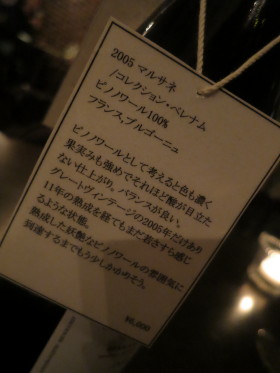 2005 マルサネ
/コレクション・ベレナム
ピノノワール100%
フランス,ブルゴーニュ
ピノノワールとして考えると色も濃く
果実みも強めでそれほど酸が目立た
ない仕上がり。バランスが良い。
グレートヴィンテージの2005年だけあり
11年の熟成を経てもまだ若さすら感じ
るような状態。
熟成した妖艶なピノノワールの雰囲気に
到達するまでもう少しかかりそう。
¥6,600